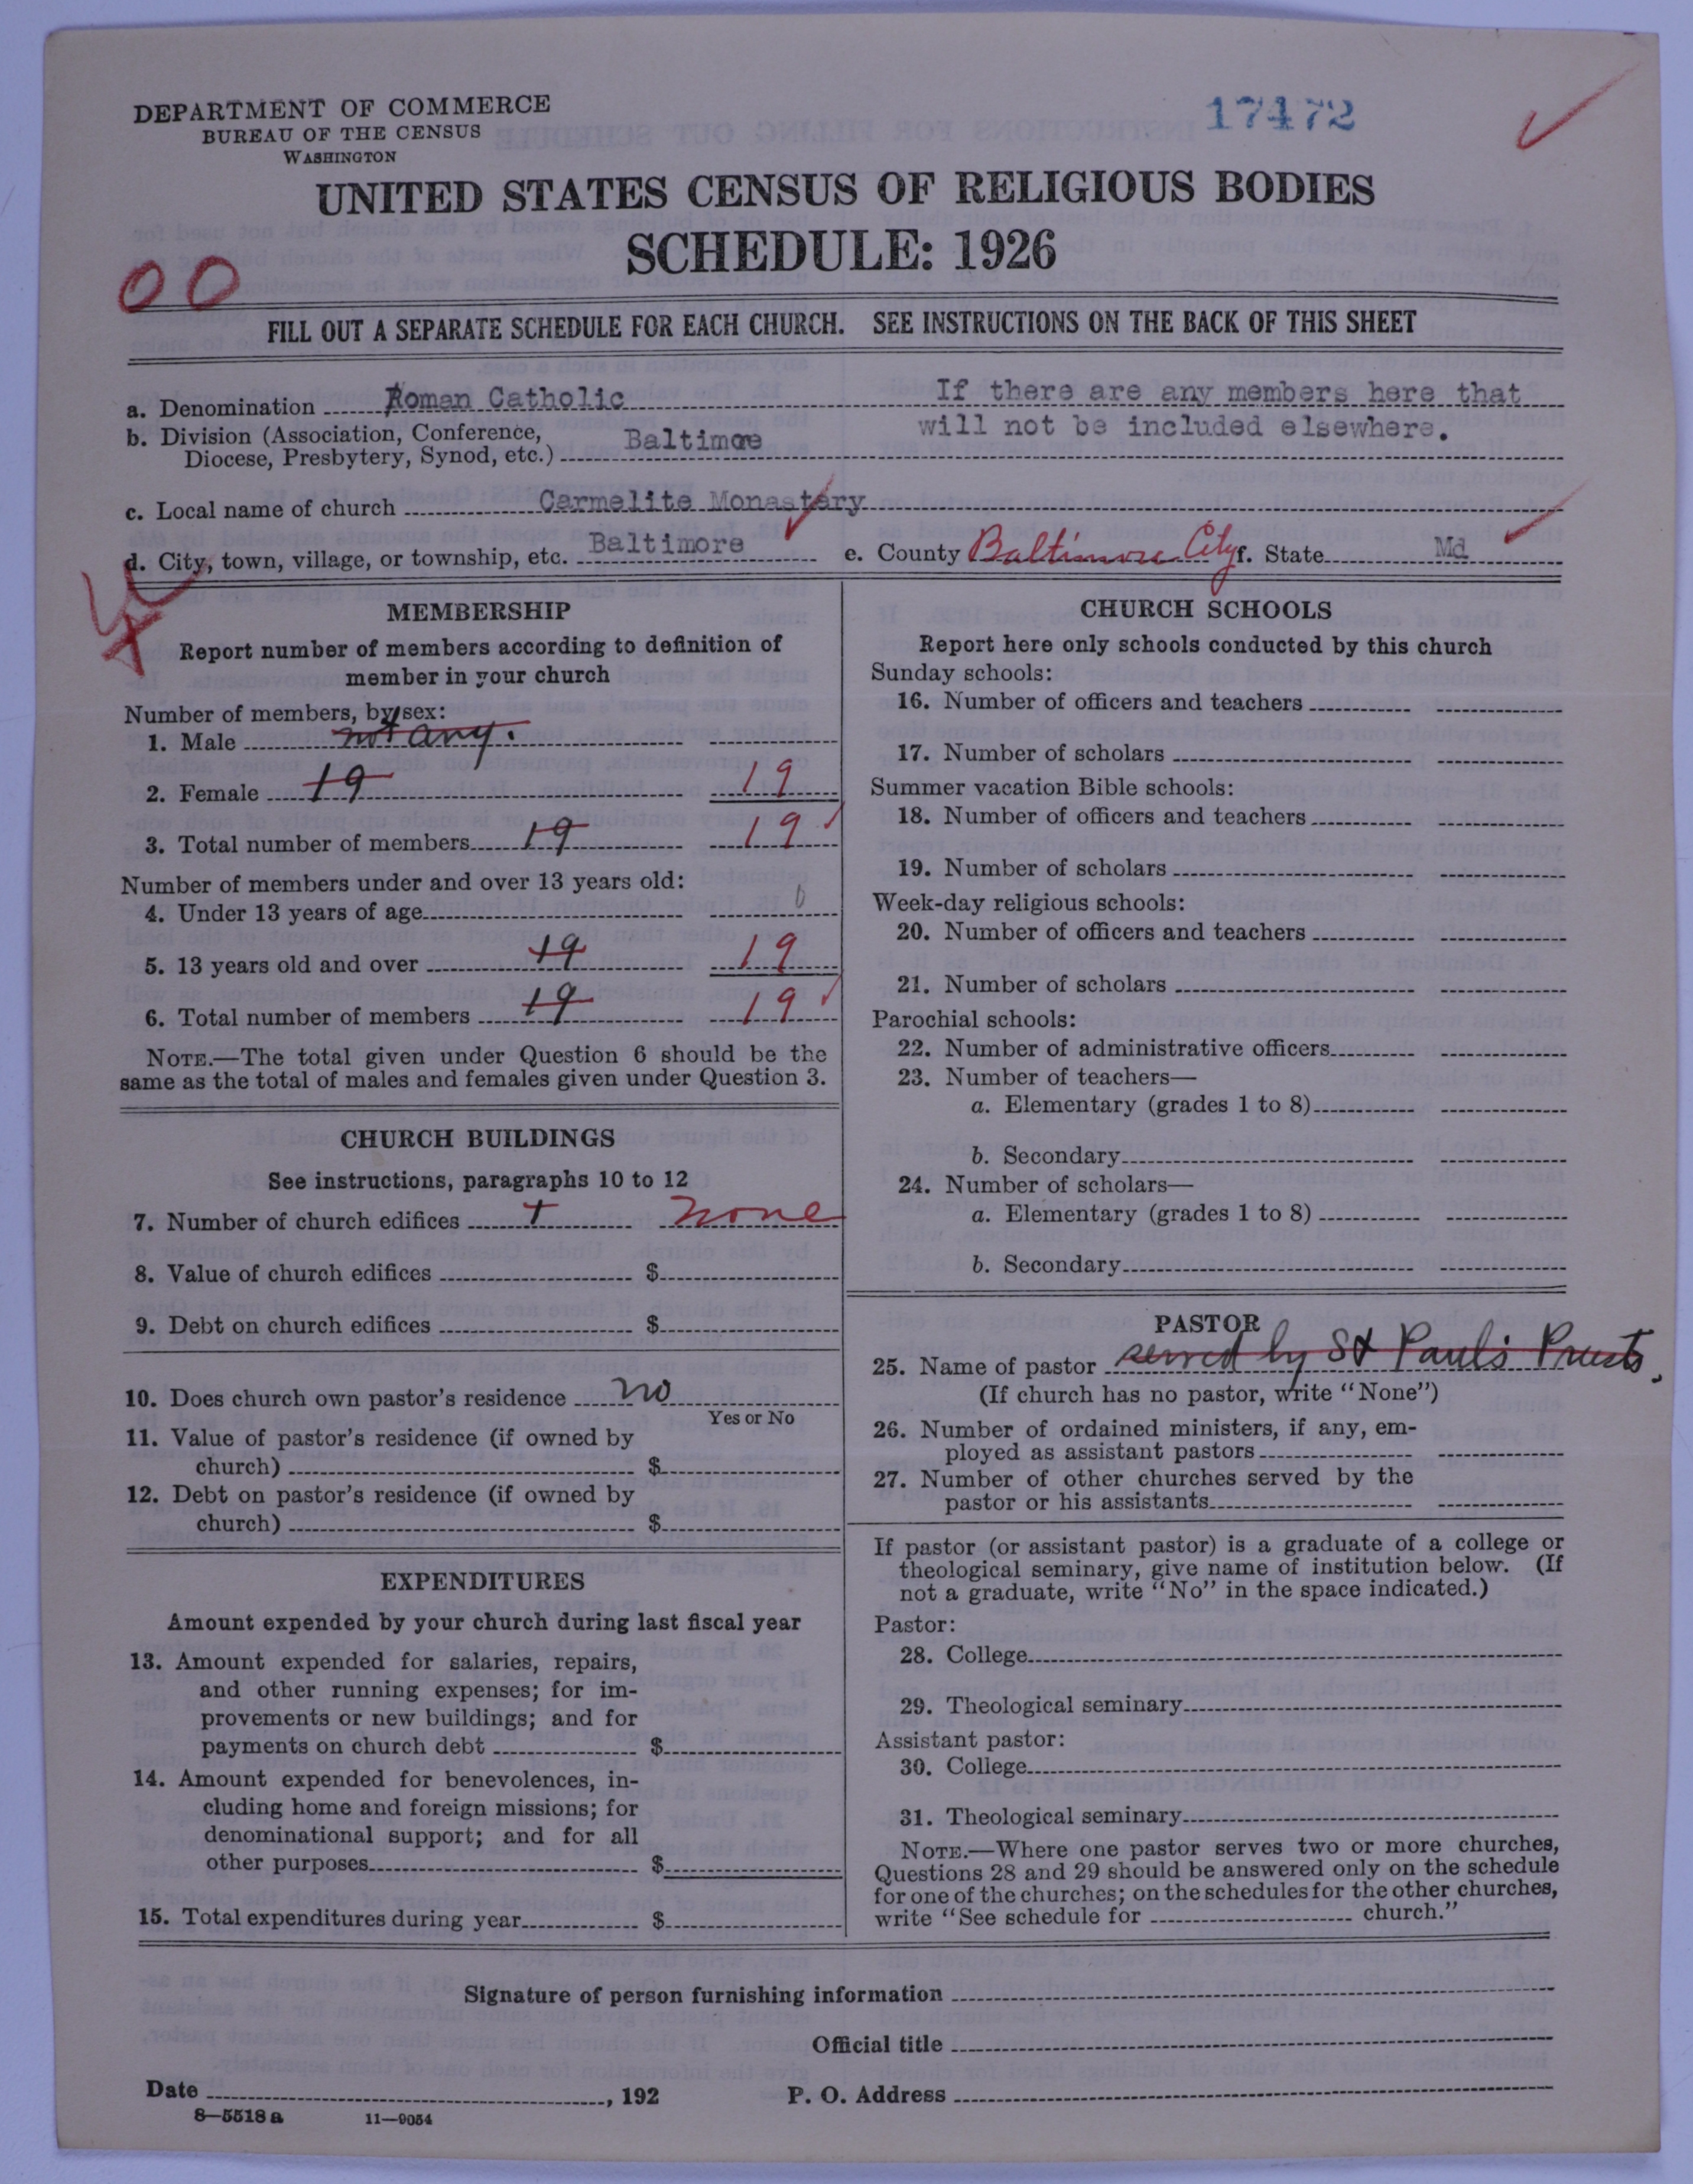 DEPARTMENT OF COMMERCE
BUREAU OF THE CENSUS
WASHINGTON
17472
UNITED STATES CENSUS OF RELIGIOUS BODIES
SCHEDULE: 1926
00
FILL OUT A SEPARATE SCHEDULE FOR EACH CHURCH. SEE INSTRUCTIONS ON THE BACK OF THIS SHEET
a. Denomination Roman Catholic If there are any members here that
will not be included elsewhere.
b. Division (Association, Conference, Baltimoe
Diocese, Presbytery, Synod, etc.)
c. Local name of church Carmelite Monastary
d. City, town, village, or township, etc. Baltimore e. County Baltimore City f. State Md
MEMBERSHIP
Report number of members according to definition of
member in your church
Number of members, by sex:
1. Male not any.
2. Female 19 19
3. Total number of members 19 19
Number of members under and over 13 years old:
4. Under 13 years of age 0
5. 13 years old and over 19 19
6. Total number of members 19 19
NOTE.—The total given under Question 6 should be the
same as the total of males and females given under Question 3.
CHURCH BUILDINGS
See instructions, paragraphs 10 to 12
7. Number of church edifices 1 none
8. Value of church edifices $
9. Debt on church edifices $
10. Does church own pastor's residence no
Yes or No
11. Value of pastor's residence (if owned by
church) $
12. Debt on pastor's residence (if owned by
church) $
EXPENDITURES
Amount expended by your church during last fiscal year
13. Amount expended for salaries, repairs,
and other running expenses; for im-
provements or new buildings; and for
payments on church debt $
14. Amount expended for benevolences, in-
cluding home and foreign missions; for
denominational support; and for all
other purposes $
15. Total expenditures during year $
CHURCH SCHOOLS
Report here only schools conducted by this church
Sunday schools:
16. Number of officers and teachers
17. Number of scholars
Summer vacation Bible schools:
18. Number of officers and teachers
19. Number of scholars
Week-day religious schools:
20. Number of officers and teachers
21. Number of scholars
Parochial schools:
22. Number of administrative officers
23. Number of teachers—
a. Elementary (grades 1 to 8)
b. Secondary
24. Number of scholars—
a. Elementary (grades 1 to 8)
b. Secondary
PASTOR
25. Name of pastor served by St Paul's Priests.
(If church has no pastor, write "None")
26. Number of ordained ministers, if any, em-
ployed as assistant pastors
27. Number of other churches served by the
pastor or his assistants
If pastor (or assistant pastor) is a graduate of a college or
theological seminary, give name of institution below. (If
not a graduate, write "No" in the space indicated.)
Pastor:
28. College
29. Theological seminary
Assistant pastor:
30. College
31. Theological seminary
NOTE.—Where one pastor serves two or more churches,
Questions 28 and 29 should be answered only on the schedule
for one of the churches; on the schedules for the other churches,
write "See schedule for church."
Signature of person furnishing information
Official title
Date , 192 P. O. Address
8—5518 a 11—9054